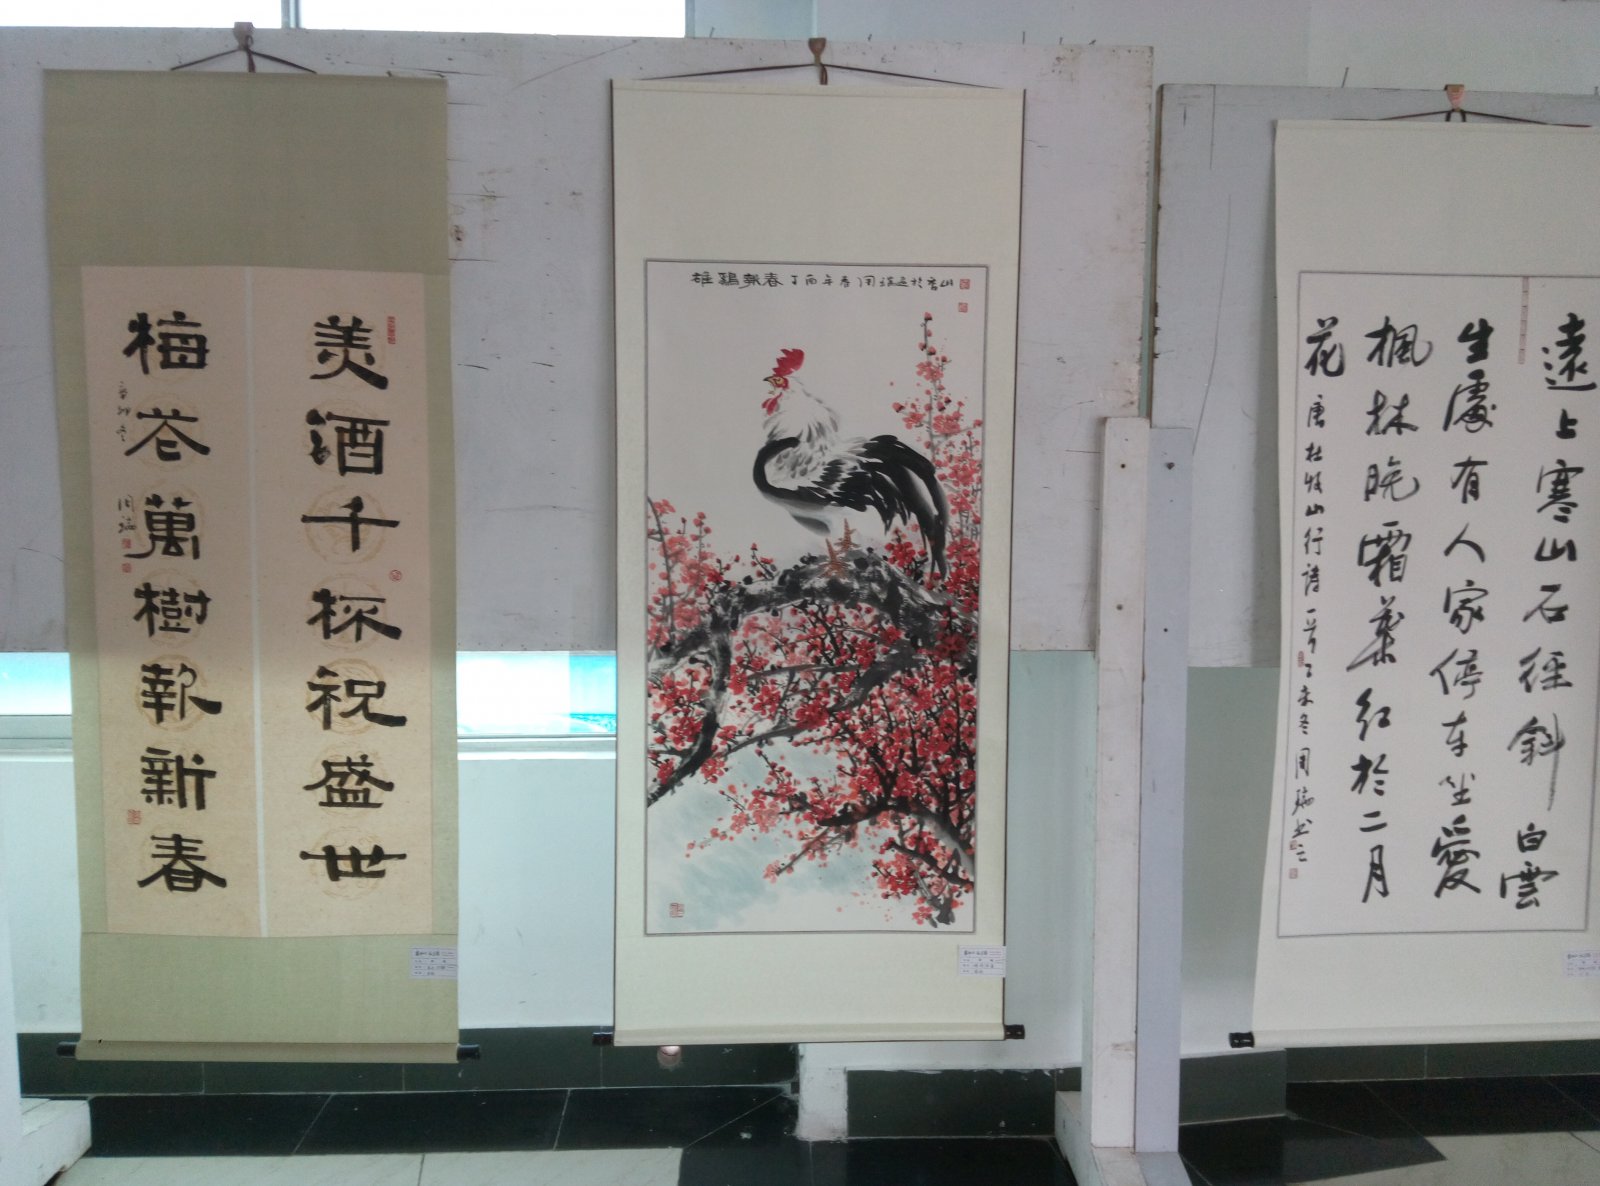 美酒千杯祝盛世
梅花萬樹報新春
辛卯冬
周瑞
雄鷄報春 丁酉年春周瑞
遠上寒山石徑斜白雲
生處有人家停车坐愛
楓林晚霜葉紅於二月
花
唐杜牧山行詩一首乙未冬周瑞书